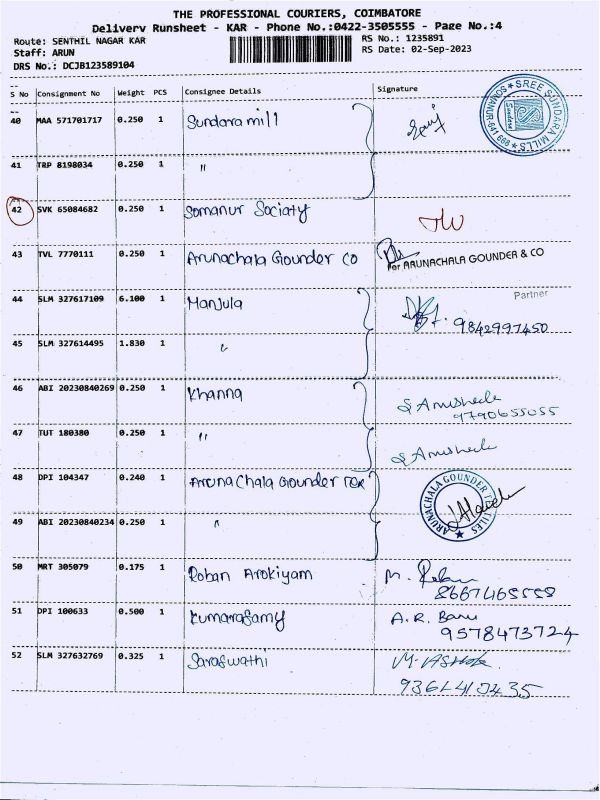 THE PROFESSIONAL COURIERS, COIMBATORE
Delivery Runsheet - KAR - Phone No.:0422-3505555 - Page No.:4
Route: SENTHIL NAGAR KAR
RS No.: 1235891
Staff: ARUN
RS Date: 02-Sep-2023
DRS No.: DCJB123589104
S No Consignment No Weight PCS Consignee Details Signature
40 MAA 571701717 0.250 1 Sundara mill
SREE SUNDARA MILLS
SOMANUR-641 668
41 TRP 8198034 0.250 1 "
42 SVK 65084682 0.250 1 Somanur Sociaty
43 TVL 7770111 0.250 1 Arunachala Gounder Co
For ARUNACHALA GOUNDER & CO
Partner
44 SLM 327617109 6.100 1 Manjula
9842997450
45 SLM 327614495 1.830 1 "
46 ABI 20230840269 0.250 1 Khanna
S Anusheela
9790655055
47 TUT 180380 0.250 1 "
S Anusheela
48 DPI 104347 0.240 1 Aruna Chala Gounder Tex
ARUNACHALA GOUNDER TEXTILES
49 ABI 20230840234 0.250 1 "
50 MRT 305079 0.175 1 Roban Arokiyam
8667468558
51 DPI 100633 0.500 1 Kumarasamy A.R. Banu
9578473724
52 SLM 327632769 0.325 1 Saraswathi